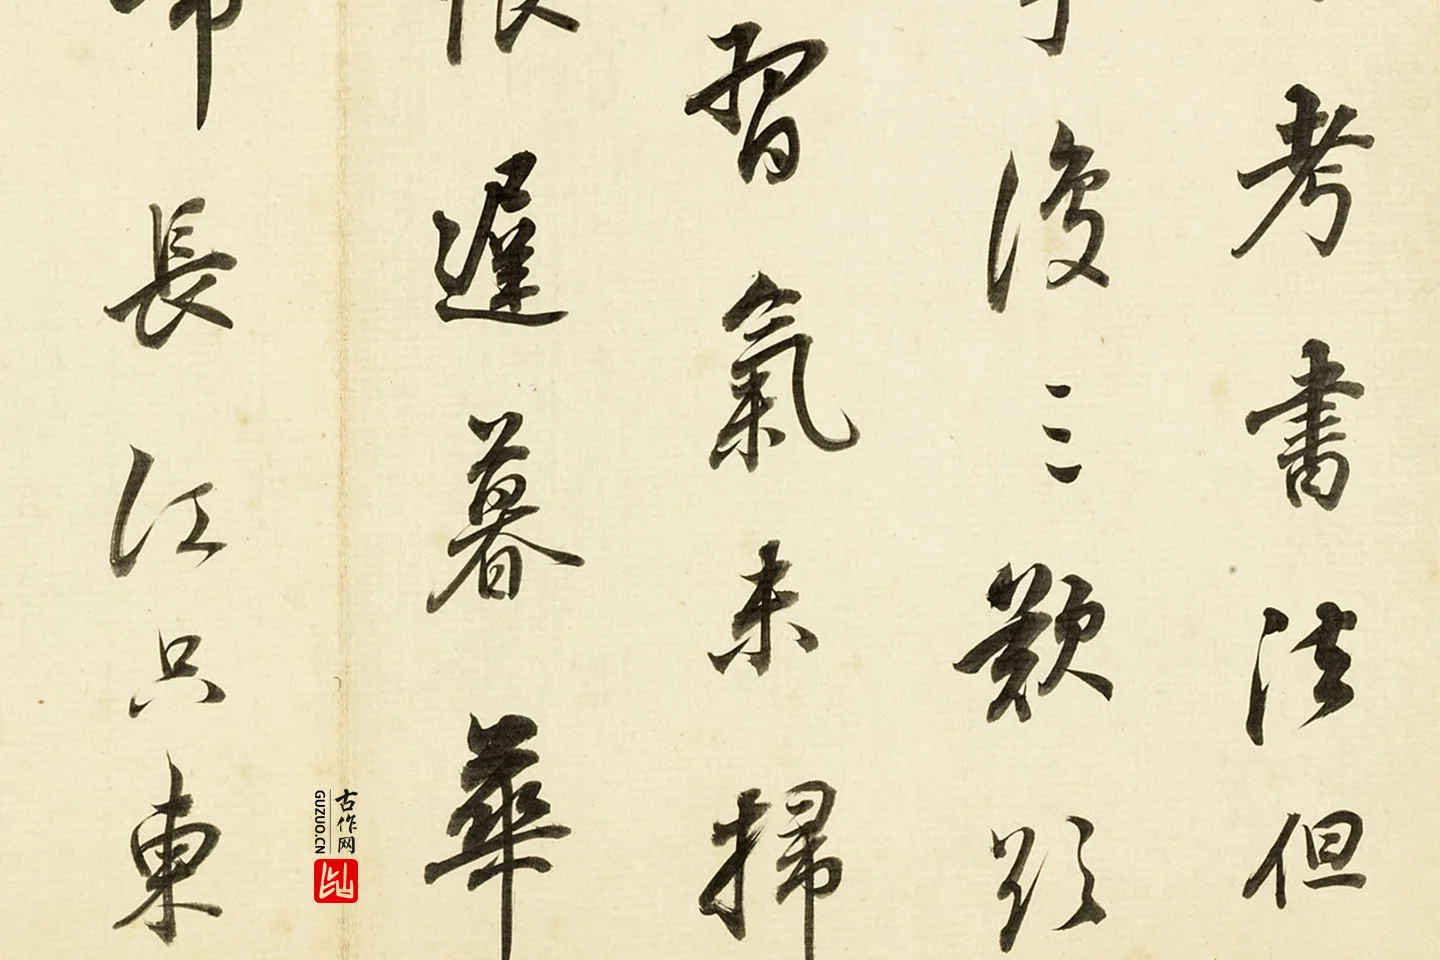 考書法但
復三歎欵
習氣未掃
遲暮華
帝長江只東
古作网
GUZUO.CN